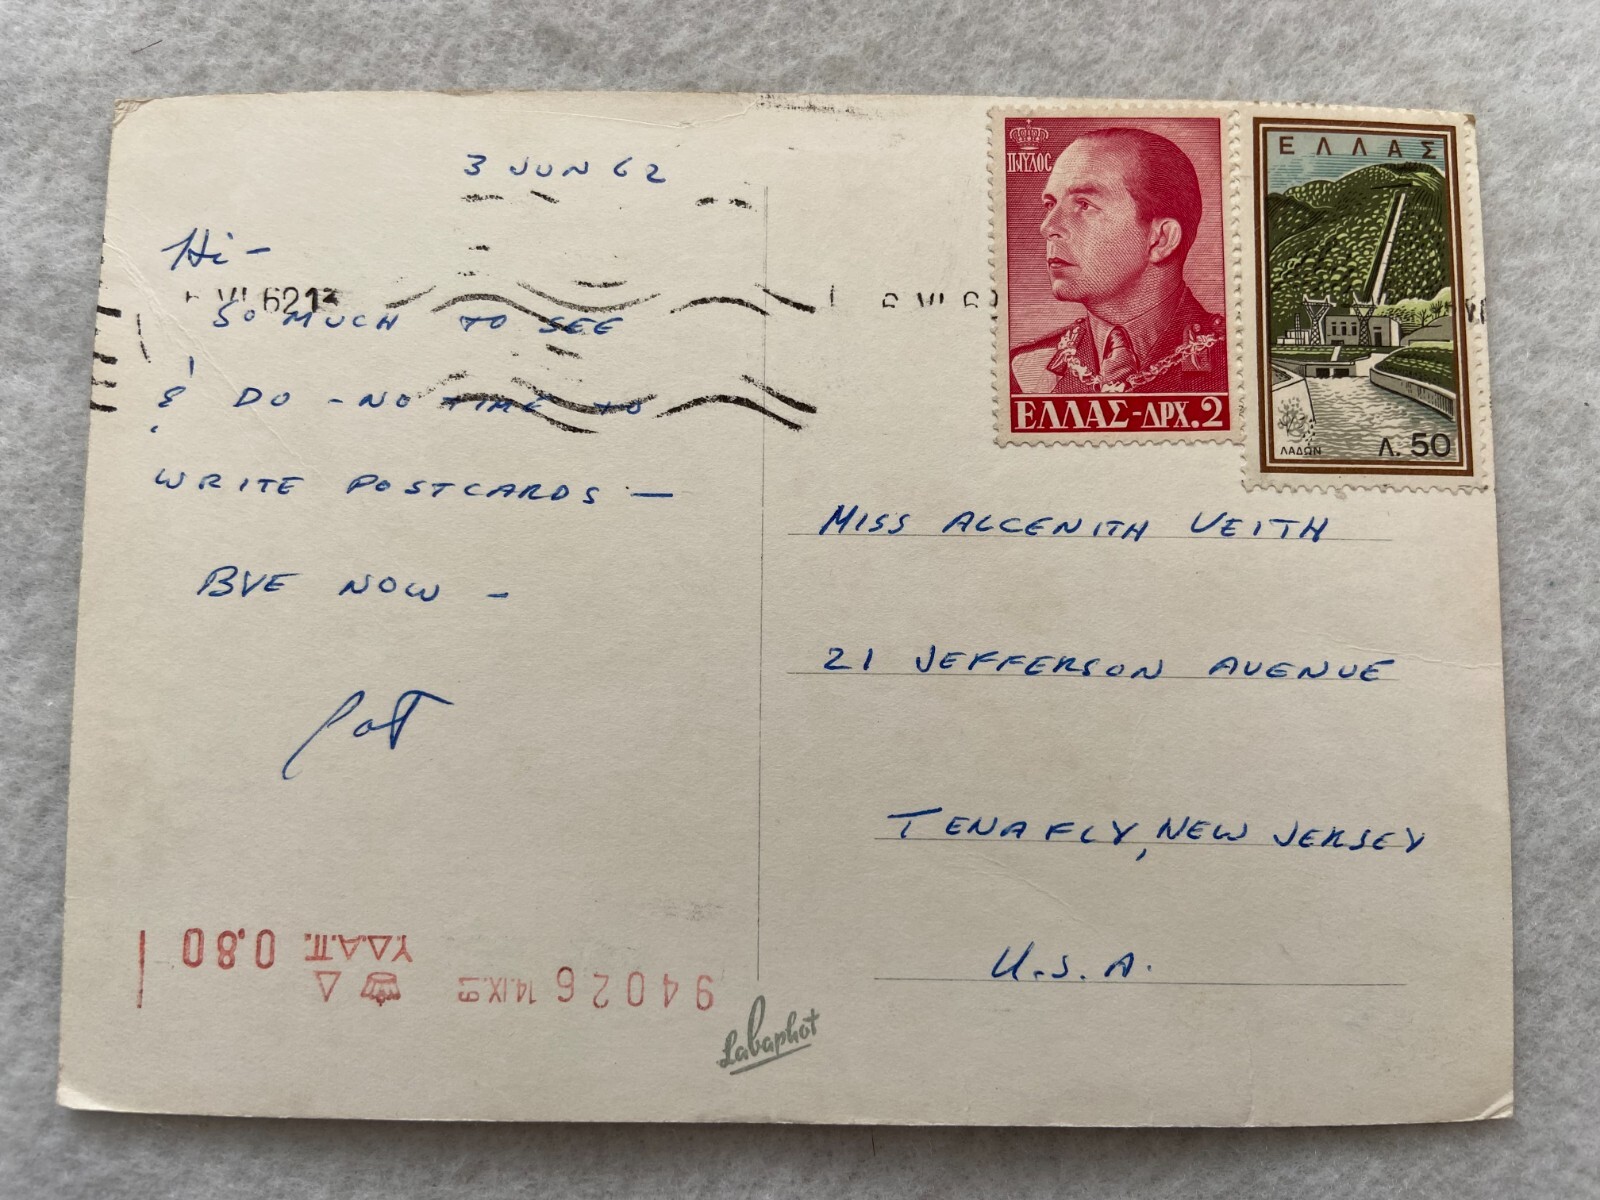 3 JUN 62
Hi -
SO MUCH TO SEE
& DO - NO TIME TO
WRITE POSTCARDS —
BYE NOW -
Pat
ΠΑΥΛΟΣ
ΕΛΛΑΣ-ΔΡΧ.2
ΕΛΛΑΣ
ΛΑΔΩΝ
Λ. 50
MISS ALCENITH VEITH
21 JEFFERSON AVENUE
TENAFLY, NEW JERSEY
U.S.A.
Υ.Δ.Α.Π. 0.80
94026 14.IX.
Δ
Labaphot